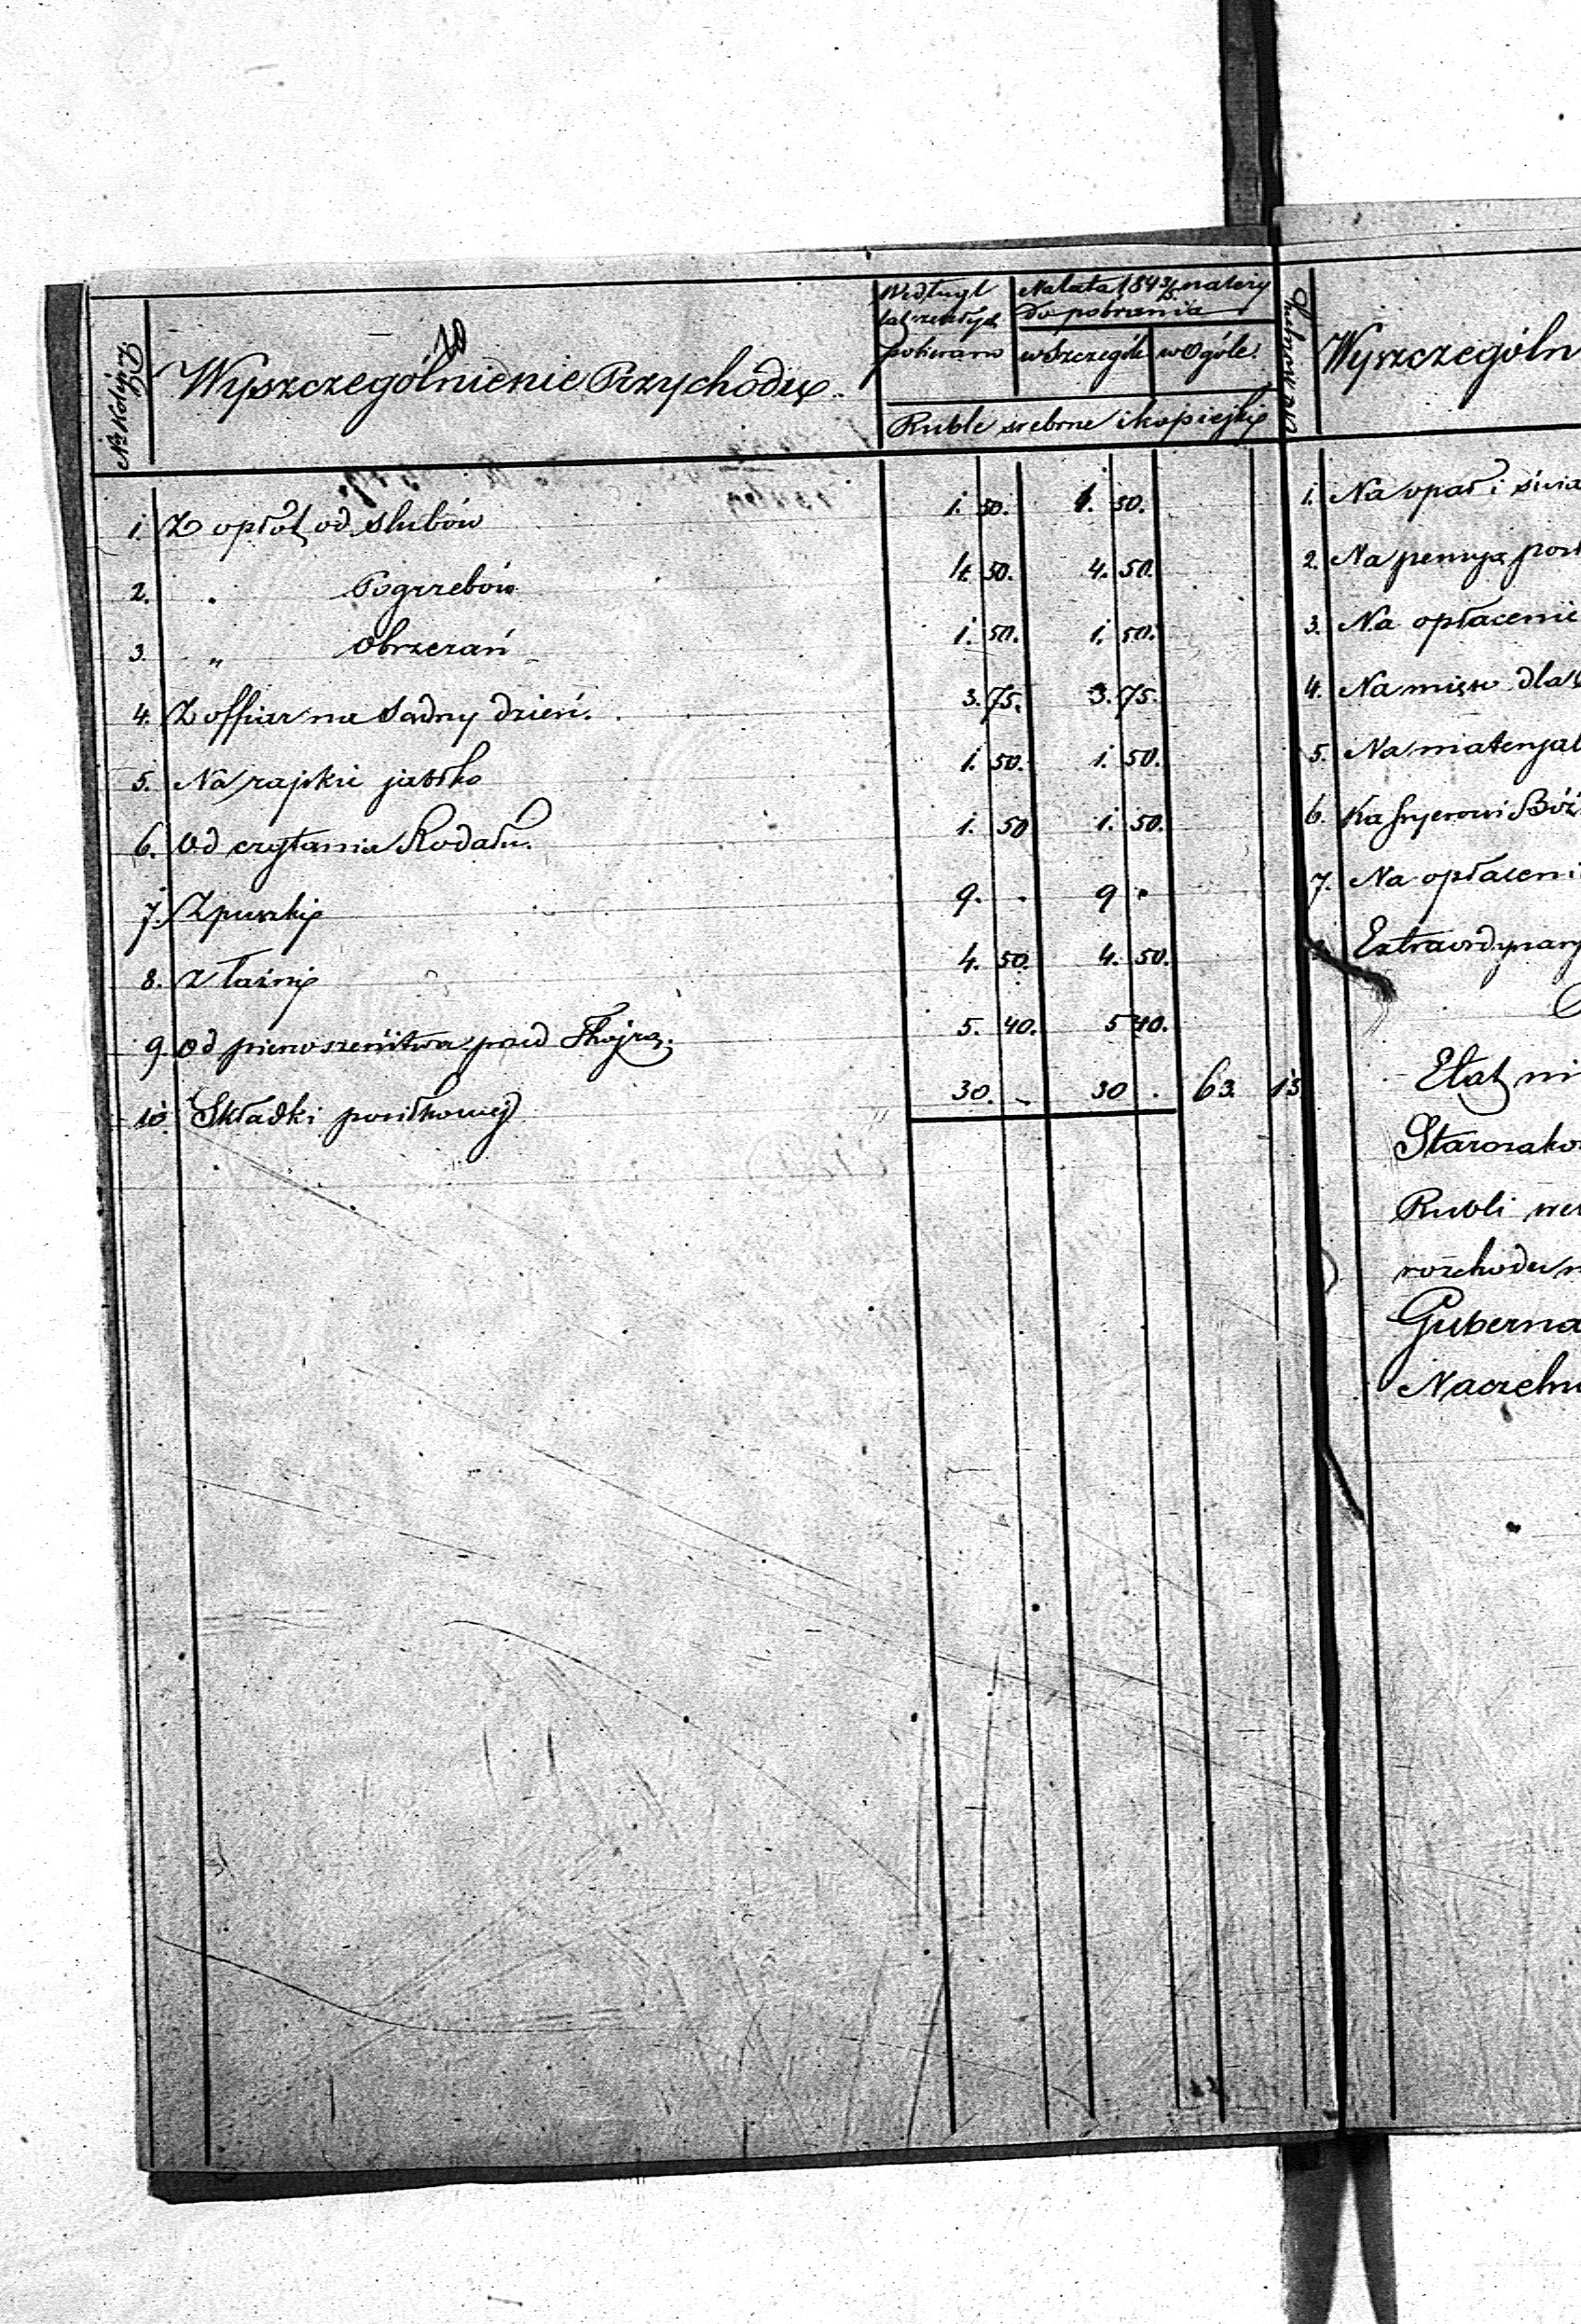 № Kolejny
10
Wyszczególnienie Przychodu
Według
lat zeszłych
pobierano
Na lata 184 3/5 należy
do pobrania
w Szczególe
w Ogóle
Ruble srebrne i kopiejki
1. Z opłat od slubów 1. 50. 1. 50.
2. " Pogrzebów 4. 50. 4. 50.
3. " Obrzezań 1. 50. 1. 50.
4. Z offiar na Sądny dzień. 3. 75. 3. 75.
5. Na rajskie jabłko 1. 50. 1. 50.
6. Od czytania Rodału. 1. 50 1. 50.
7. Z puszki 9. - 9 -
8. Z łaźni 4. 50. 4. 50.
9. Od pierwszeństwa przed Thojrą. 5. 40. 5 40.
10. Składki posiłkowej 30. - 30 . 63. 15
Wyszczególn
1. Na opał i świa
2. Na pensyą
3. Na opłacenie
4. Na dla
5. Na materyal
6. Kassyerowi Bóż
7. Na opłaceni
Extraordynary
Etat
Starozako
Rubli
rozchodu
Guberna
Naczelni